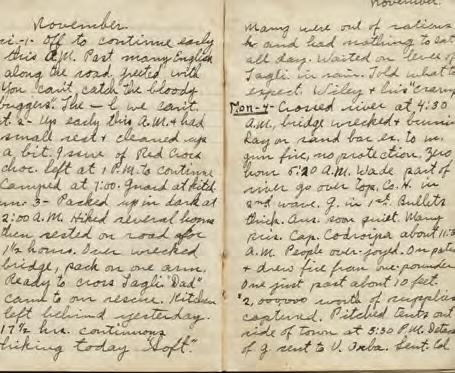 November.
ri.-1- Off to continue early
this A.M. Past many English
along the road, greeted with
"You can't catch the bloody
buggers". The - l we can't.
t. 2- Up early this A.M. & had
small rest & cleaned up
a bit. Issue of Red Cross
choc. left at 1 P.M. to continue
Camped at 7:00. Guard at kitch.
un. 3- Packed up in dark at
2:00 A.M. Hiked several hours
then rested on road for
1½ hours. Over wrecked
bridge, pack on one arm.
Ready to cross Tagli. "Dad"
came to our rescue. Kitchen
left behind yesterday.
17½ hrs. continuous
hiking today "Soft".
November.
Many were out of rations
& had nothing to eat
all day. Waited on levee of
Tagli in rain. Told what to
expect. Wiley & his cramp
Mon-4- Crossed river at 4:30
A.M., bridge wrecked &
Lay on sand bar ex. to m.
gun fire, no protection. Zero
hour 5:20 A.M. Wade part of
river go over top. Co. H. in
2nd wave. G. in 1st. Bullets
thick. Aus. soon quiet. Many
pris. Cap. Codroipa about 11:
A.M. People over-joyed. On patrol
& drew fire from one-pounder
One just past about 10 feet.
$2,000000 worth of supplies
captured. Pitched tents out
side of town at 5:30 P.M. Detach
of G sent to V. Orba. Sent. Col